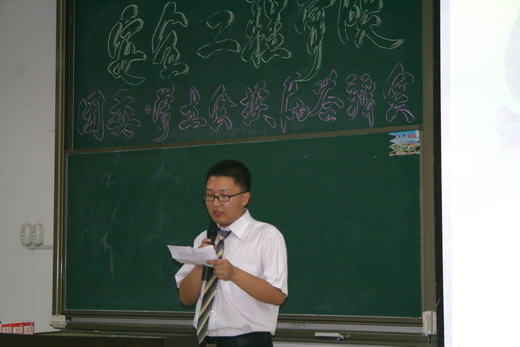 安全工程学院
团委·学生会换届答辩